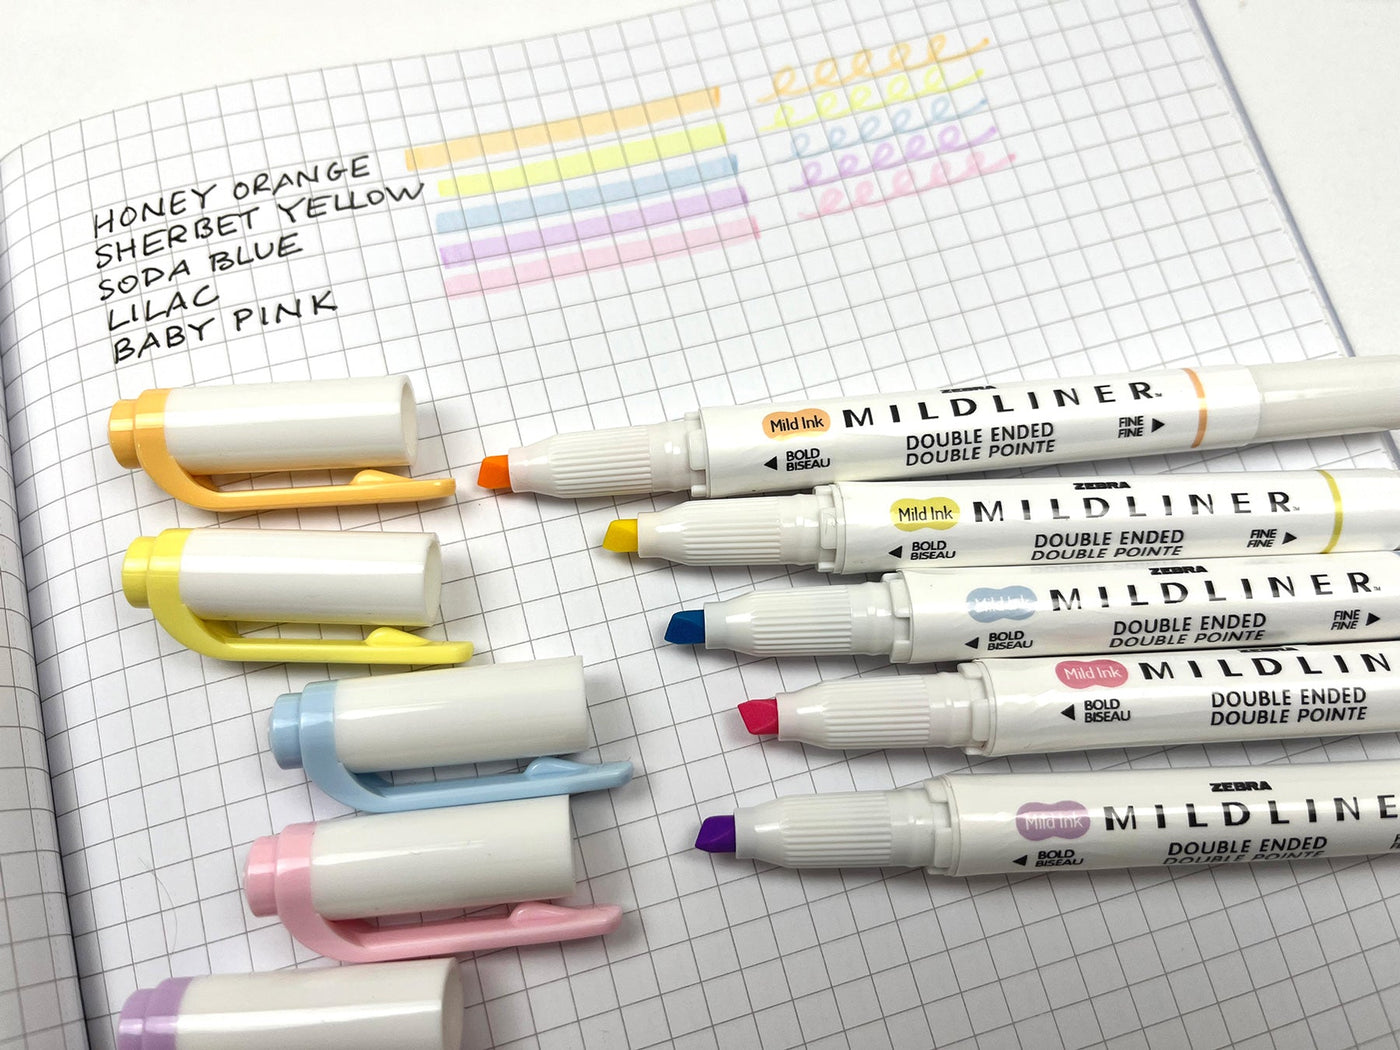 HONEY ORANGE
SHERBET YELLOW
SODA BLUE
LILAC
BABY PINK
ZEBRA
Mild Ink MILDLINER
BOLD DOUBLE ENDED FINE
BISEAU DOUBLE POINTE FINE
ZEBRA
Mild Ink MILDLINER
BOLD DOUBLE ENDED FINE
BISEAU DOUBLE POINTE FINE
ZEBRA
Mild Ink MILDLINER
BOLD DOUBLE ENDED FINE
BISEAU DOUBLE POINTE FINE
Mild Ink MILDLIN
BOLD DOUBLE ENDED
BISEAU DOUBLE POINTE
ZEBRA
Mild Ink MILDLINE
BOLD DOUBLE ENDED
BISEAU DOUBLE POINTE